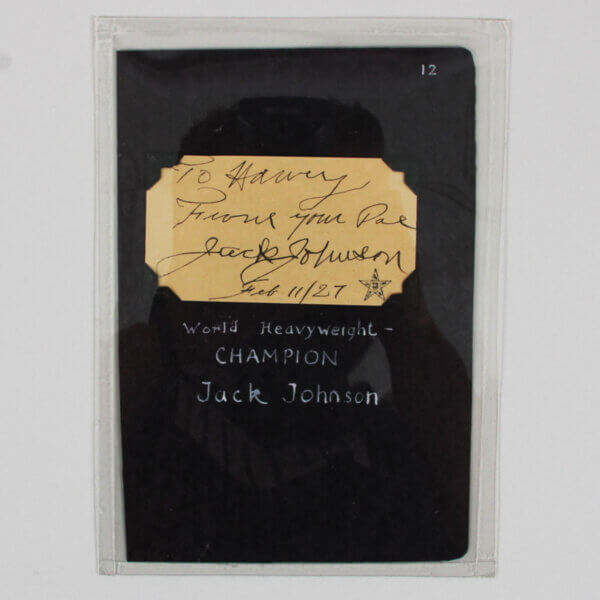 12
To Harvey
From your Pal
Jack Johnson
Feb 11/27
World Heavyweight -
CHAMPION
Jack Johnson